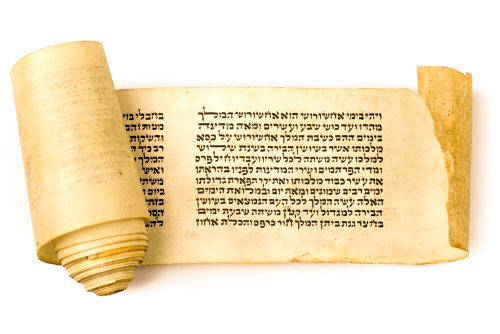 ויהי בימי אחשורוש הוא אחשורוש המלך
מהדו ועד כוש שבע ועשרים ומאה מדינה
בימים ההם כשבת המלך אחשורוש על כסא
מלכותו אשר בשושן הבירה בשנת שלוש
למלכו עשה משתה לכל שריו ועבדיו חיל פרס
ומדי הפרתמים ושרי המדינות לפניו בהראתו
את עשר כבוד מלכותו ואת יקר תפארת גדולתו
ימים רבים שמונים ומאת יום ובמלואת הימים
האלה עשה המלך לכל העם הנמצאים בשושן
הבירה למגדול ועד קטן משתה שבעת ימים
בחצר גנת ביתן המלך חור כרפס ותכלת אחוז
בחבלי
מטות
והשקות
רב כיד
המלך
משתה
ביום